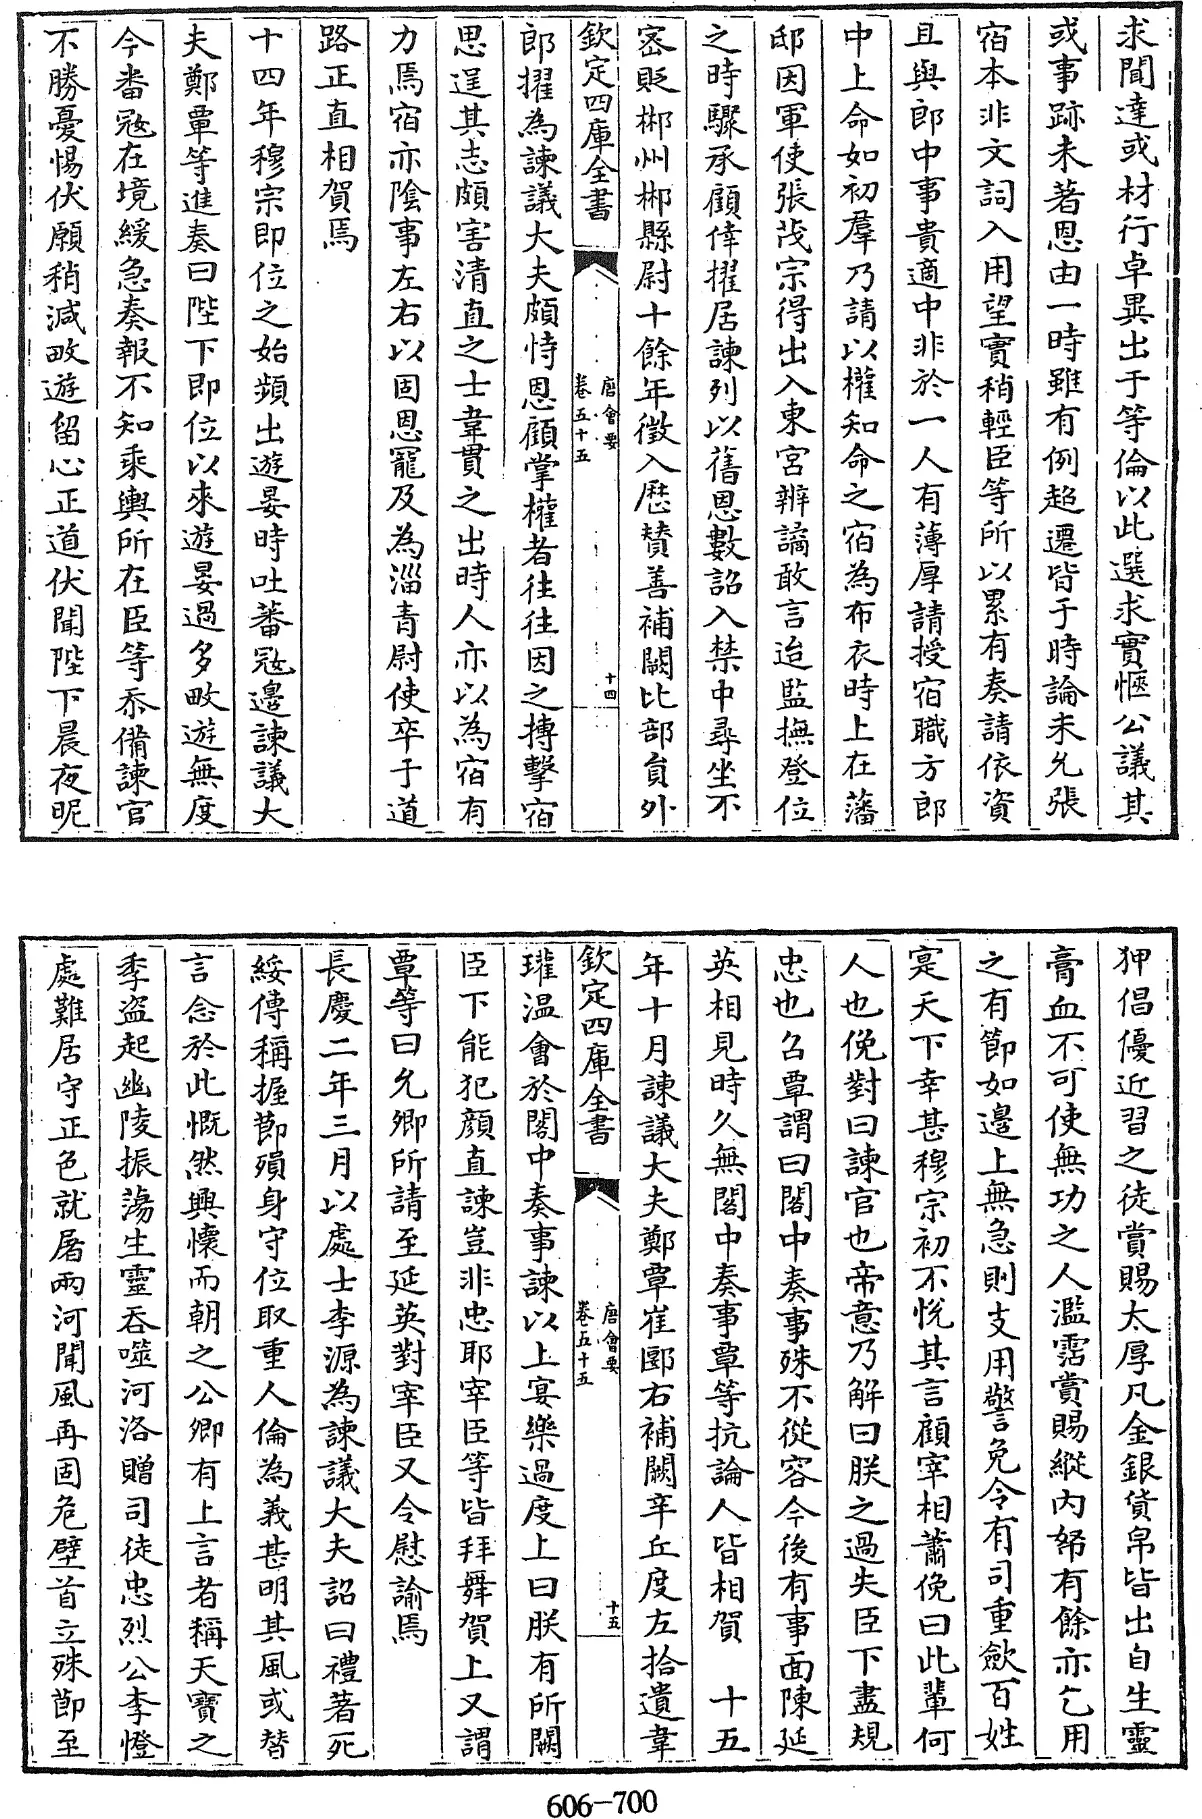 求聞達或材行卓異出于等倫以此選求實愜公議其
或事跡未著恩由一時雖有例超遷皆于時論未允張
宿本非文詞入用望實稍輕臣等所以累有奏請依資
且與郎中事貴適中非於一人有薄厚請授宿職方郎
中上命如初羣乃請以權知命之宿為布衣時上在藩
邸因軍使張茂宗得出入東宮辨譎敢言迨監撫登位
之時驟承顧倖擢居諫列以舊恩數詔入禁中尋坐不
密貶郴州郴縣尉十餘年徵入歷贊善補闕比部員外
欽定四庫全書
唐會要
卷五十五
十四
郎擢為諫議大夫頗恃恩顧掌權者往往因之搏擊宿
思逞其志頗害清直之士韋貫之出時人亦以為宿有
力焉宿亦陰事左右以固恩寵及為淄青尉使卒于道
路正直相賀焉
十四年穆宗即位之始頻出遊宴時吐蕃寇邊諫議大
夫鄭覃等進奏曰陛下即位以來遊宴過多畋遊無度
今蕃寇在境緩急奏報不知乘輿所在臣等忝備諫官
不勝憂惕伏願稍減畋遊留心正道伏聞陛下晨夜昵
狎倡優近習之徒賞賜太厚凡金銀貨帛皆出自生靈
膏血不可使無功之人濫霑賞賜縱內帑有餘亦乞用
之有節如邊上無急則支用警免令有司重斂百姓
寔天下幸甚穆宗初不悅其言顧宰相蕭俛曰此輩何
人也俛對曰諫官也帝意乃解曰朕之過失臣下盡規
忠也召覃謂曰閤中奏事殊不從容今後有事面陳延
英相見時久無閤中奏事覃等抗論人皆相賀　十五
年十月諫議大夫鄭覃崔郾右補闕辛丘度左拾遺韋
欽定四庫全書
唐會要
卷五十五
十五
瓘溫會於閤中奏事諫以上宴樂過度上曰朕有所闕
臣下能犯顏直諫豈非忠耶宰臣等皆拜舞賀上又謂
覃等曰允卿所請至延英對宰臣又令慰諭焉
長慶二年三月以處士李源為諫議大夫詔曰禮著死
綏傳稱握節殞身守位取重人倫為義甚明其風或替
言念於此慨然興懷而朝之公卿有上言者稱天寶之
季盜起幽陵振蕩生靈吞噬河洛贈司徒忠烈公李憕
處難居守正色就屠兩河聞風再固危壁首立殊節至
606-700